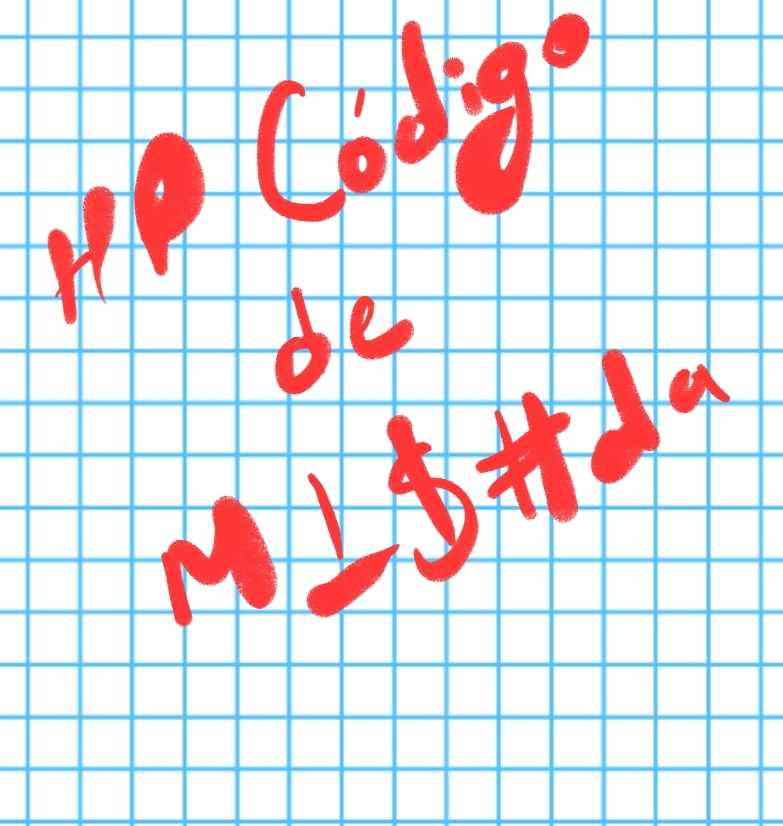 HP Código
de
M⊥$#da